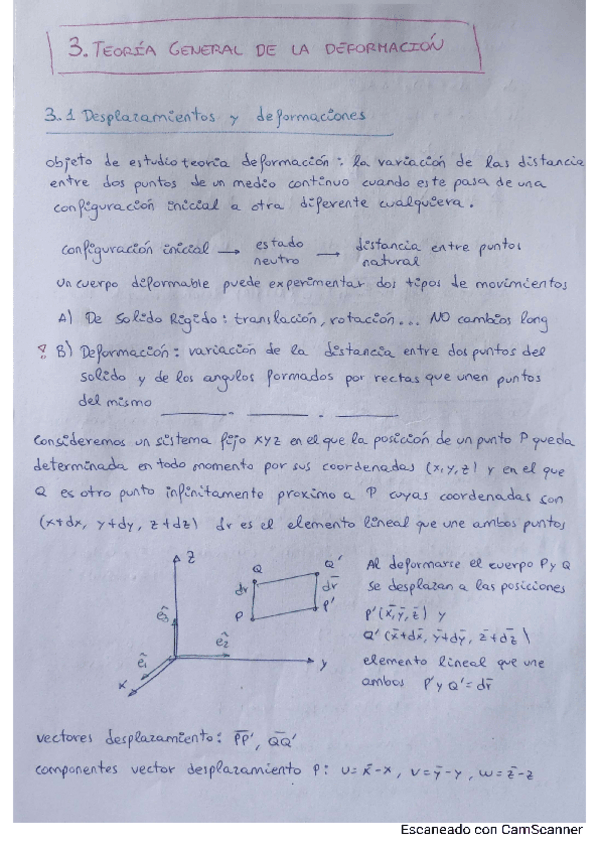 3. TEORÍA GENERAL DE LA DEFORMACIÓN
3.1 Desplazamientos y deformaciones
objeto de estudio teoria deformación: la variacion de las distancia
entre dos puntos de un medio continuo cuando este pasa de una
configuración inicial a otra diferente cualquiera.
configuración inicial → estado neutro → distancia entre puntos natural
Un cuerpo deformable puede experimentar dos tipos de movimientos
A) De Solido Rigido: translación, rotación... NO cambios long
B) Deformación: variación de la distancia entre dos puntos del
solido y de los angulos formados por rectas que unen puntos
del mismo
Consideremos un sistema fijo XYZ en el que la posición de un punto P queda
determinada en todo momento por sus coordenadas (x,y,z) y en el que
Q es otro punto infinitamente proximo a P cuyas coordenadas son
(x+dx, y+dy, z+dz) dr es el elemento lineal que une ambos puntos
Z
Q
Q'
dr
dr̄
P
P'
ê3
ê2
ê1
x
y
Al deformarse el cuerpo P y Q
se desplazan a las posiciones
P'(x̄,ȳ,z̄) y
Q'(x̄+dx̄, ȳ+dȳ, z̄+dz̄)
elemento lineal que une
ambos P' y Q' = dr̄
vectores desplazamiento: P̄P̄', Q̄Q̄'
componentes vector desplazamiento P: u = x̄-x, v = ȳ-y, w = z̄-z
Escaneado con CamScanner